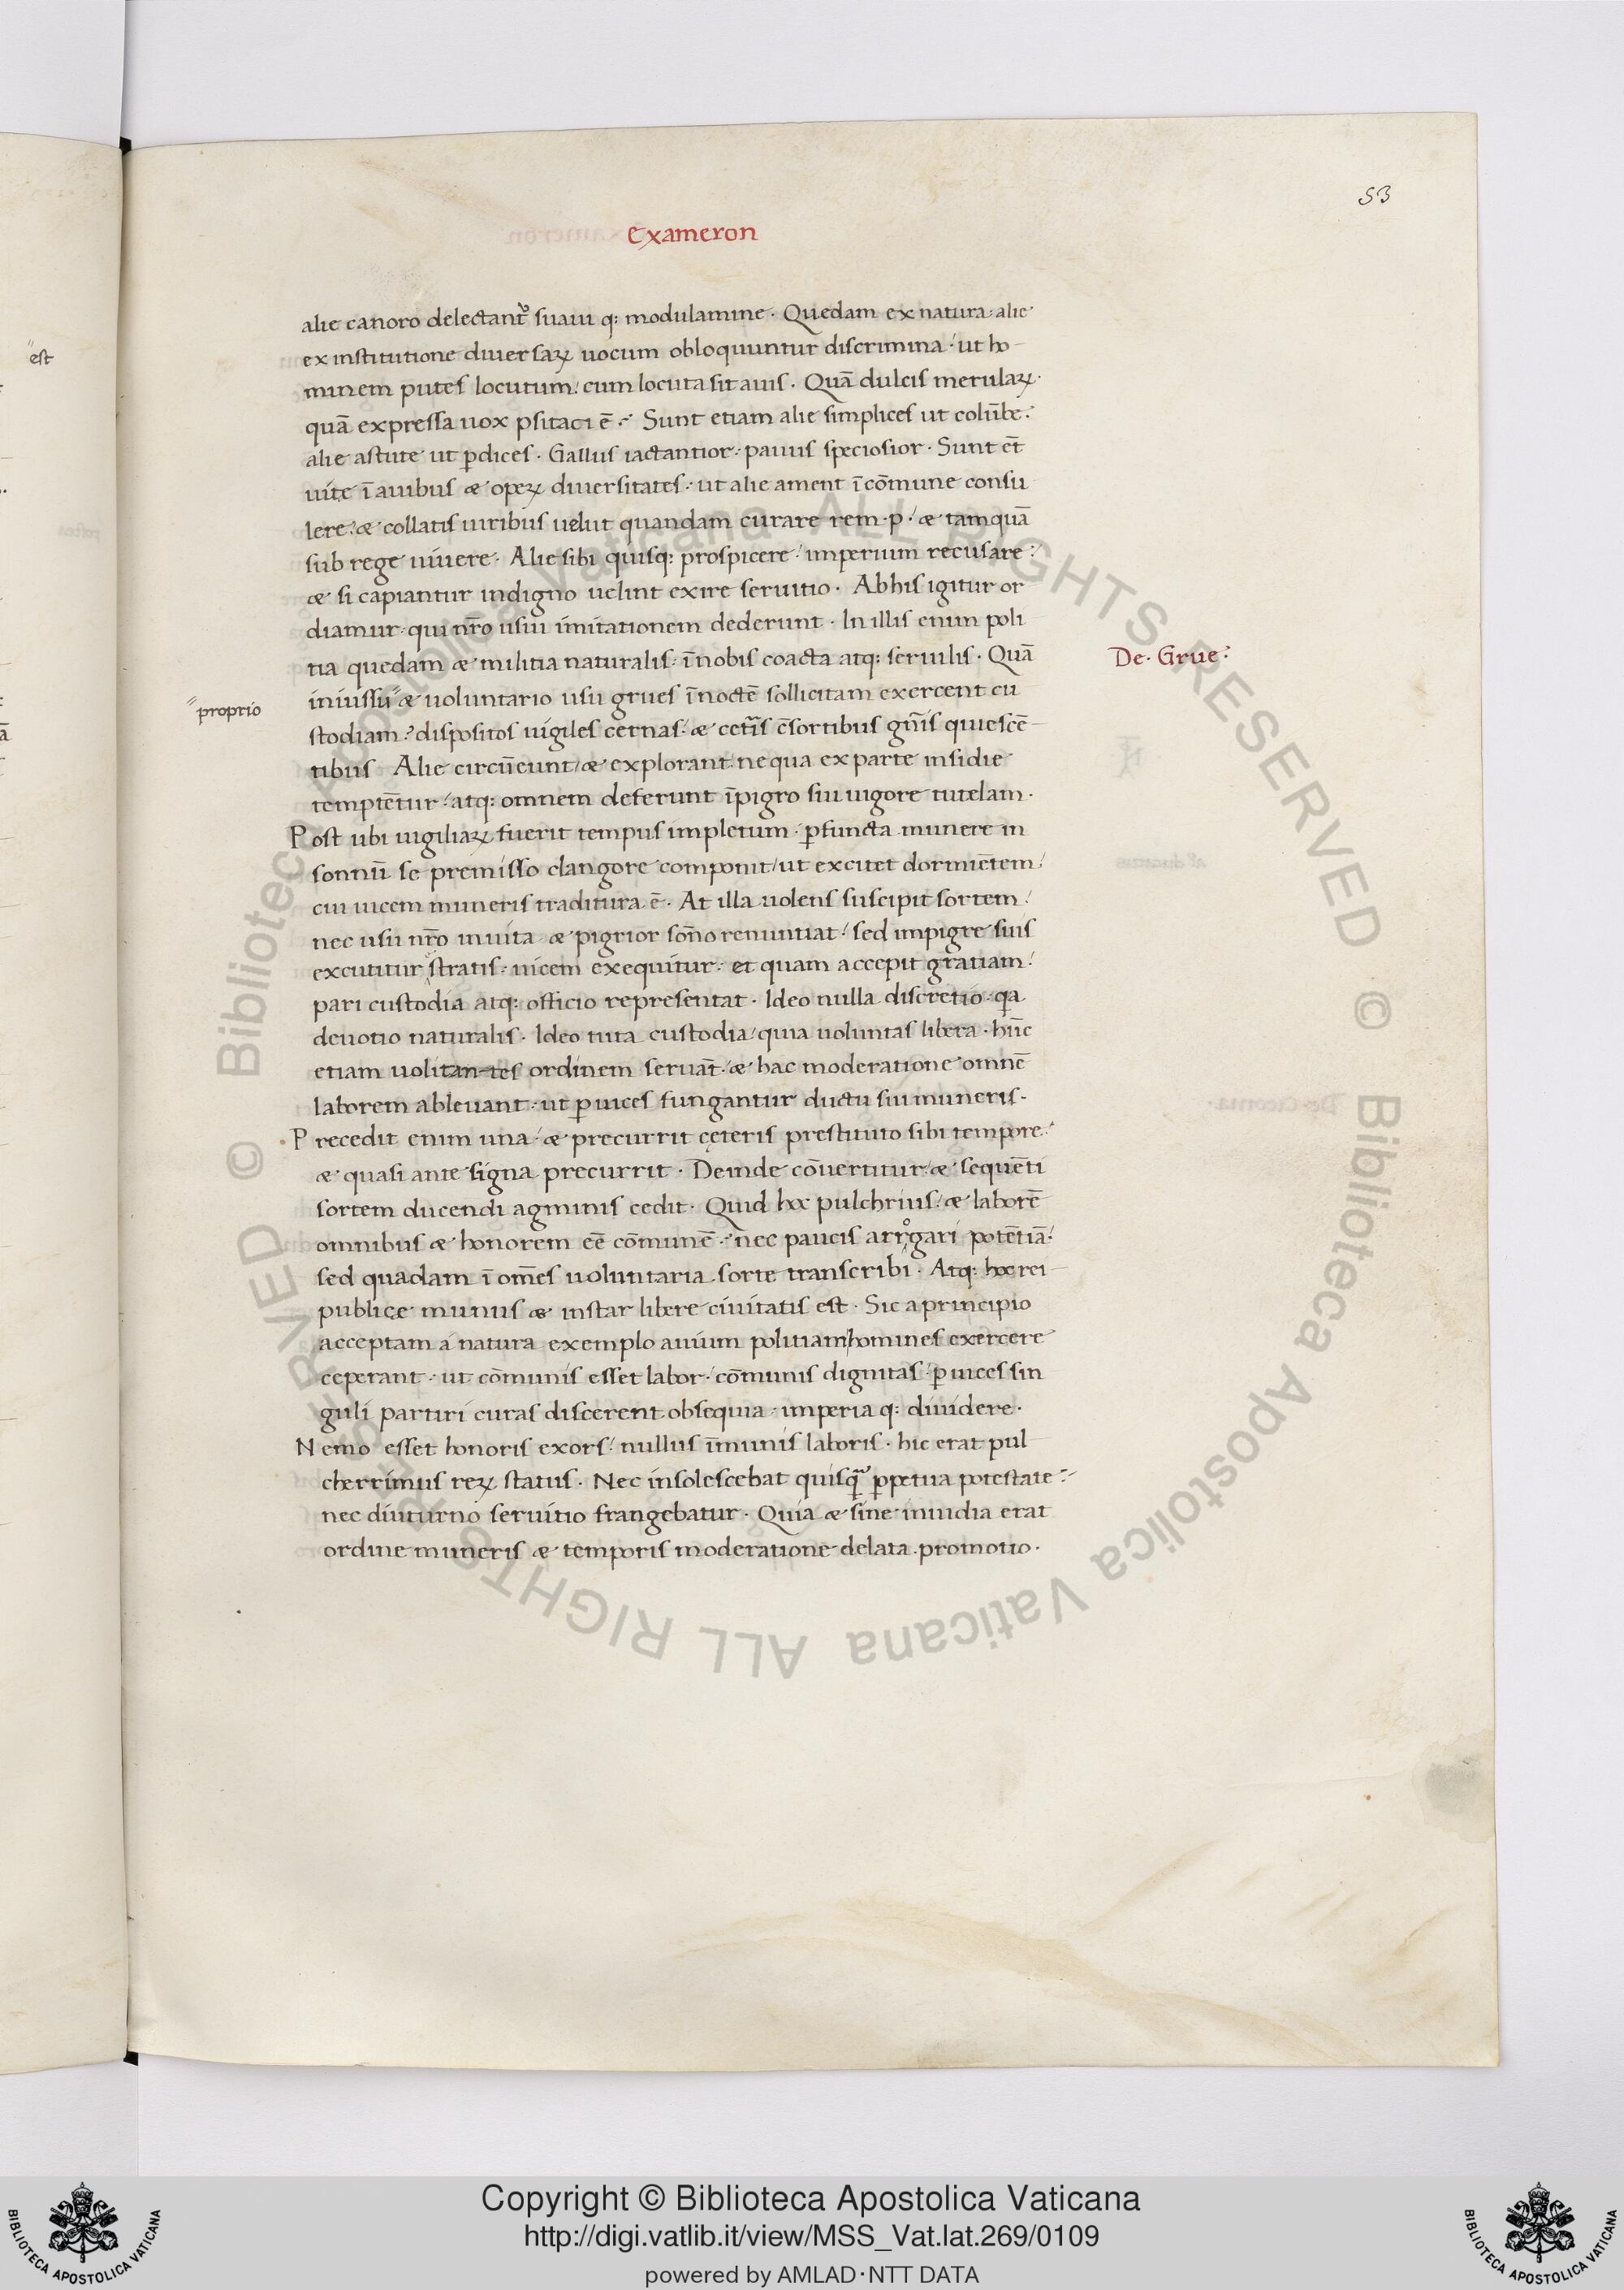 53
Exameron
alie canoro delectant᷑ suaui q: modulamine · Quedam ex natura: alie
ex institutione diuersaꝝ uocum obloquuntur discrimina · ut ho
minem putes locutum / cum locuta sit auis · Quā dulcis merulaꝝ ·
quā expressa uox psitaci ē · Sunt etiam alie simplices ut colūbe :
alie astute ut ꝑdices · Gallus iactantior : pauus speciosior · Sunt et̄
uitę ī auibus æ opeꝝ diuersitates : ut alie ament ī cōmune consu
lere : æ collatis uiribus uelut quandam curare rem · p · / æ tamquā
sub rege uiuere · Alie sibi quisq: prospicere / imperium recusare :
æ si capiantur indigno uelint exire seruitio · Ab his igitur or
diamur · qui nr̄o usui imitationem dederunt · In illis enim poli
tia quedam æ militia naturalis : ī nobis coacta atq: seruilis · Quā
De · Grue :
iniussu" æ uoluntario usu grues ī noctē sollicitam exercent cu
"proprio
stodiam : dispositos uigiles cernas : æ cet̄is c̄sortibus gn̄is quiescē
tibus Alie circūeunt / æ explorant ne qua ex parte insidie
temptētur / atq: omnem deferunt īpigro sui uigore tutelam ·
Post ubi uigiliaꝝ fuerit tempus impletum · ꝑfuncta munere in
sonnū se premisso clangore componit / ut excitet dormiētem /
cui uicem muneris traditura ē · At illa uolens suscipit sortem /
nec usu nr̄o inuita æ pigrior sōno renuntiat / sed impigre suis
excutitur stratis : uicem exequitur : et quam accepit gratiam /
pari custodia atq: officio representat · Ideo nulla discretio · qa
deuotio naturalis · Ideo tuta custodia / quia uoluntas libera · hūc
etiam uolitan-tes ordinem seruāt · æ hac moderatione omnē
laborem ableuant · ut ꝑ uices fungantur ductu sui muneris ·
Precedit enim una / æ precurrit cęteris prestituto sibi tempore :
æ quasi ante signa precurrit · Deinde cōuertitur / æ sequēti
sortem ducendi agminis cedit · Quid hoc pulchrius / æ laborē
omnibus æ honorem eē cōmunē · nec paucis arrogari potētiā /
sed quadam ī om̄es uoluntaria sorte transcribi · Atq: hoc rei
publicę munus æ instar libere ciuitatis est · Sic a principio
acceptam a natura exemplo auium politiam homines exercere
ceperant · ut cōmunis esset labor / cōmunis dignitas · ꝑ uices sin
guli partiri curas discerent obsequia · imperia q: diuidere ·
Nemo esset honoris exors / nullus īmunis laboris · hic erat pul
cherrimus reꝝ status · Nec insolescebat quisq̄ ꝑpetua potestate :
nec diuturno seruitio frangebatur · Quia æ sine inuidia erat
ordine muneris æ temporis moderatione delata promotio ·
"est
© Biblioteca Apostolica Vaticana ALL RIGHTS RESERVED © Biblioteca Apostolica Vaticana ALL RIGHTS RESERVED
Copyright © Biblioteca Apostolica Vaticana
http://digi.vatlib.it/view/MSS_Vat.lat.269/0109
powered by AMLAD·NTT DATA
BIBLIOTECA APOSTOLICA VATICANA
BIBLIOTECA APOSTOLICA VATICANA